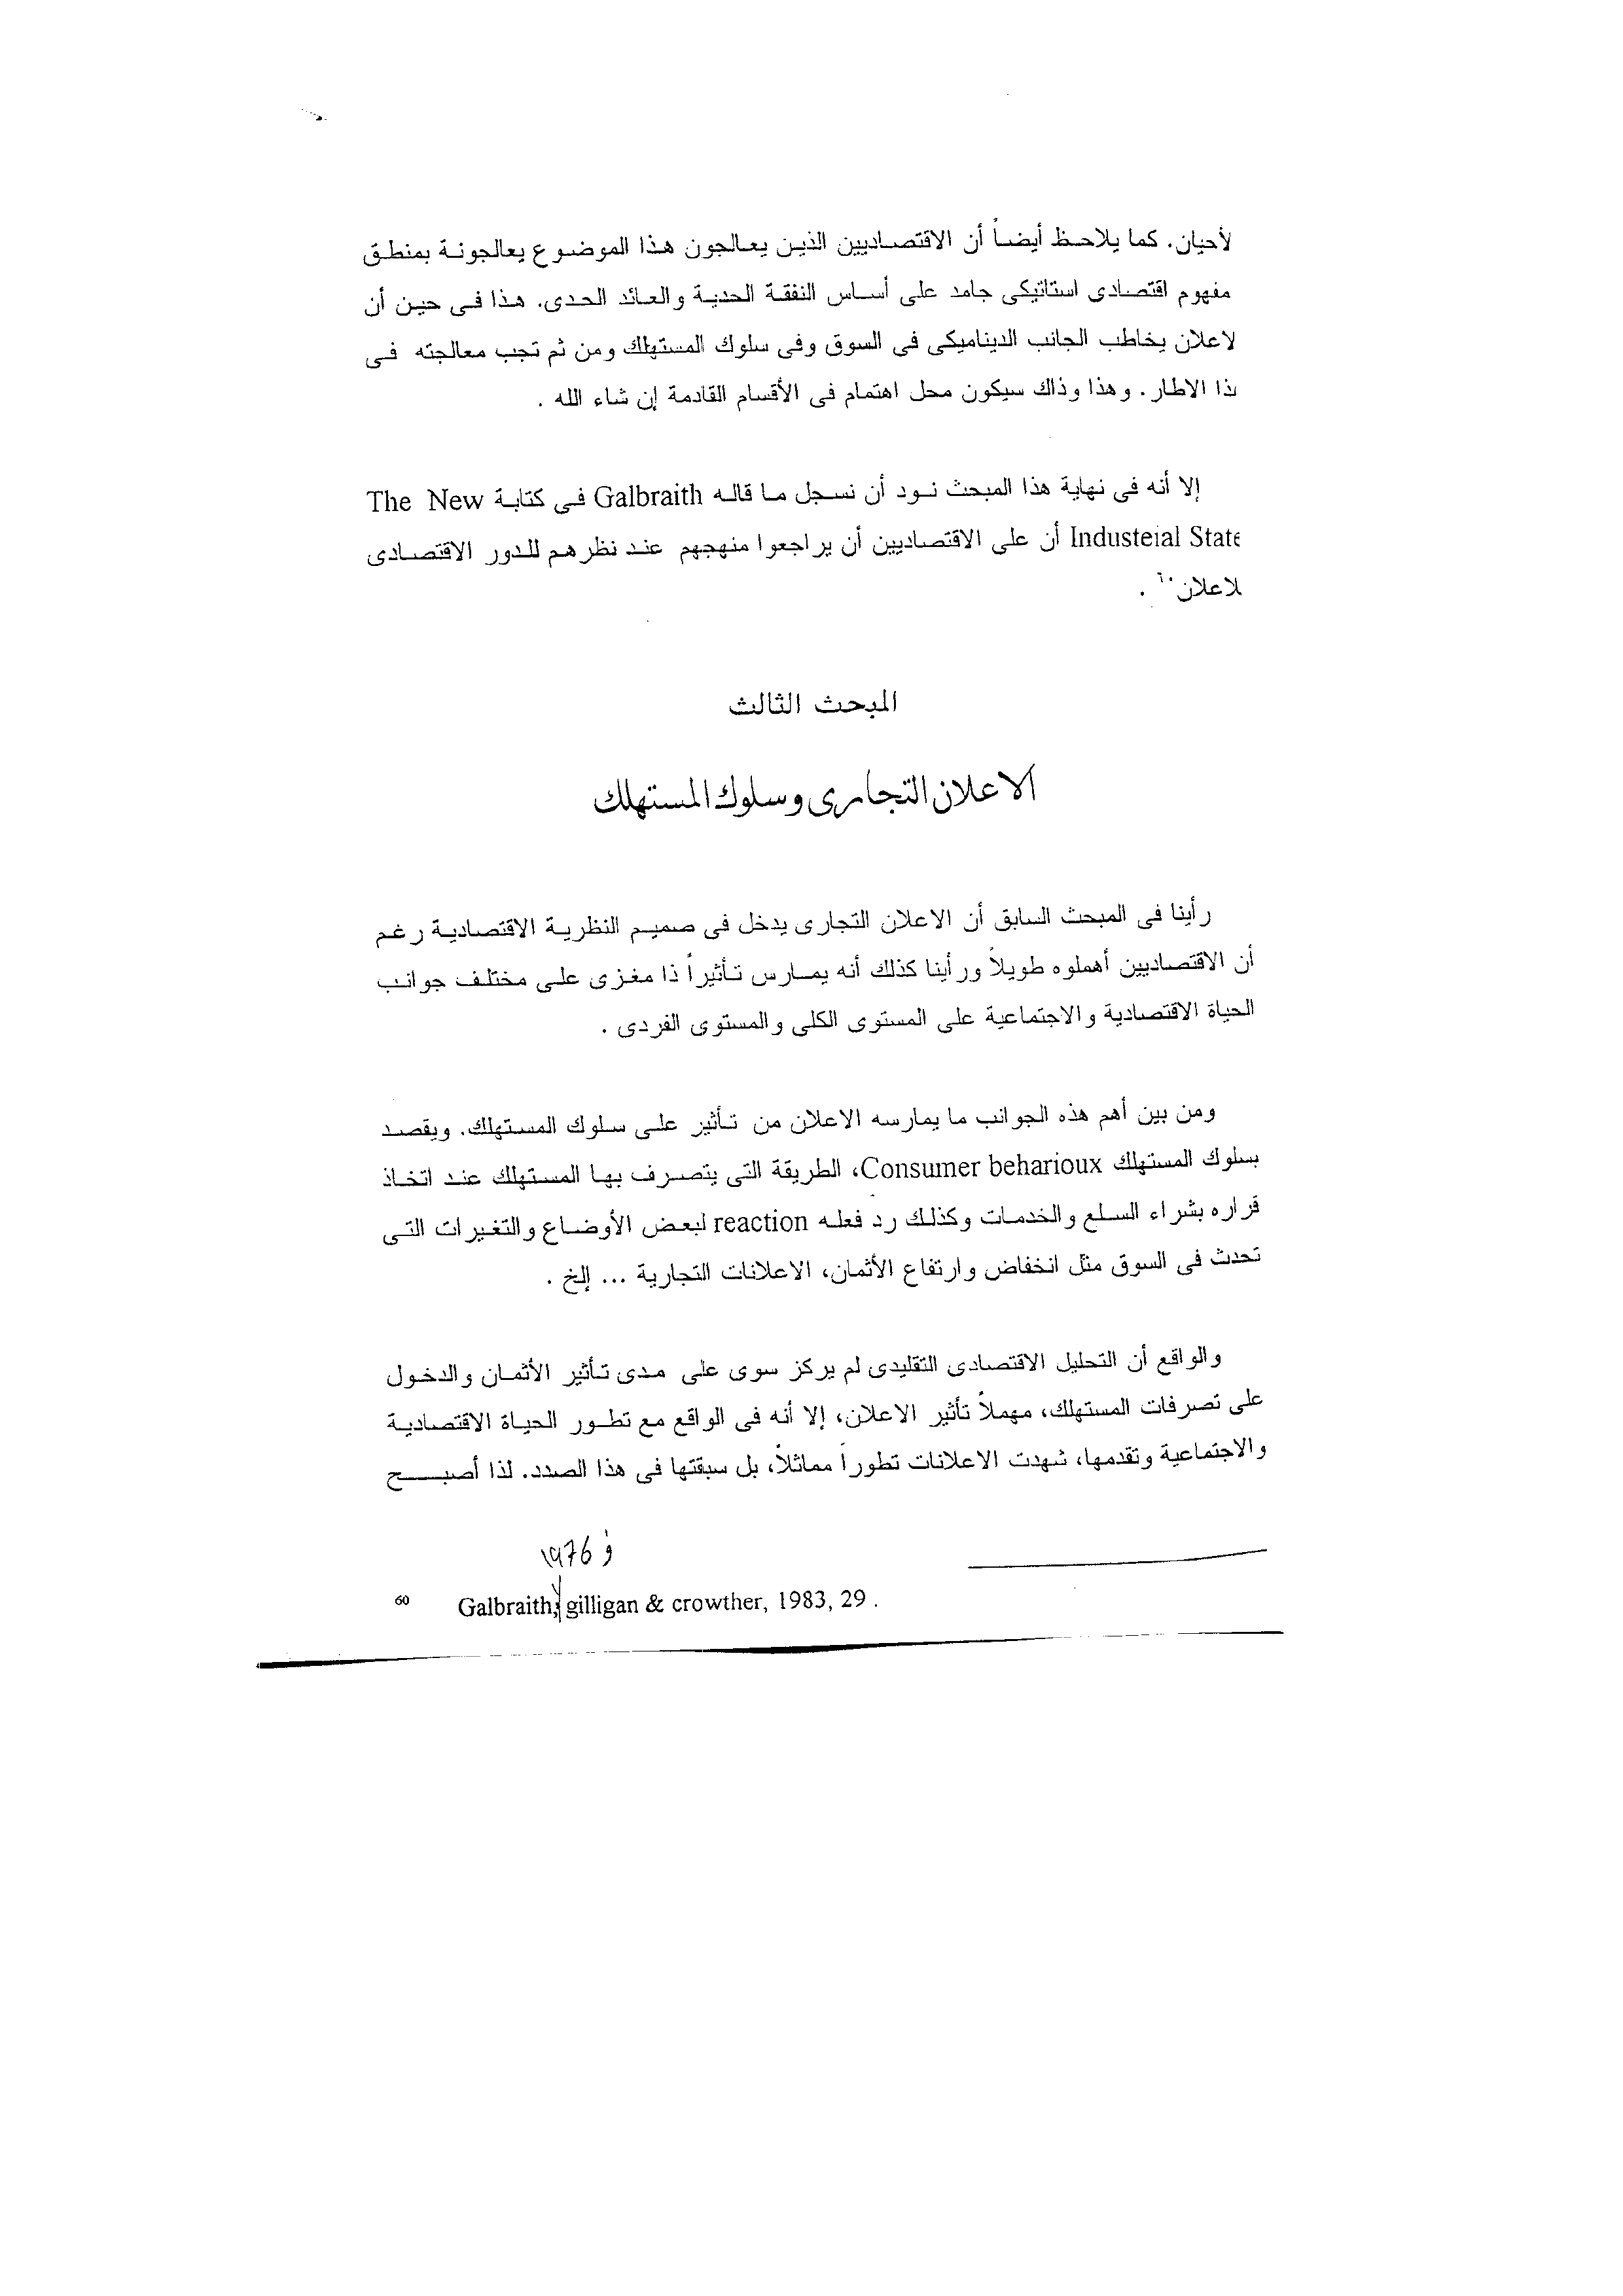 لأحيان. كما يلاحظ أيضاً أن الاقتصاديين الذين يعالجون هذا الموضوع يعالجونة بمنطق
مفهوم اقتصادى استاتيكى جامد على أساس النفقة الحدية والعائد الحدى. هذا فى حين أن
لاعلان يخاطب الجانب الديناميكى فى السوق وفى سلوك المستهلك ومن ثم تجب معالجته فى
ذا الاطار. وهذا وذاك سيكون محل اهتمام فى الأقسام القادمة إن شاء الله .
إلا أنه فى نهاية هذا المبحث نود أن نسجل ما قاله Galbraith فى كتابة The New
Industeial State أن على الاقتصاديين أن يراجعوا منهجهم عند نظرهم للدور الاقتصادى
للاعلان٦٠ .
المبحث الثالث
الاعلان التجارى وسلوك المستهلك
رأينا فى المبحث السابق أن الاعلان التجارى يدخل فى صميم النظرية الاقتصادية رغم
أن الاقتصاديين أهملوه طويلاً ورأينا كذلك أنه يمارس تأثيراً ذا مغزى على مختلف جوانب
الحياة الاقتصادية والاجتماعية على المستوى الكلى والمستوى الفردى .
ومن بين أهم هذه الجوانب ما يمارسه الاعلان من تأثير على سلوك المستهلك. ويقصد
بسلوك المستهلك Consumer beharioux، الطريقة التى يتصرف بها المستهلك عند اتخاذ
قراره بشراء السلع والخدمات وكذلك رد فعله reaction لبعض الأوضاع والتغيرات التى
تحدث فى السوق مثل انخفاض وارتفاع الأثمان، الاعلانات التجارية ... إلخ .
والواقع أن التحليل الاقتصادى التقليدى لم يركز سوى على مدى تأثير الأثمان والدخول
على تصرفات المستهلك، مهملاً تأثير الاعلان، إلا أنه فى الواقع مع تطور الحياة الاقتصادية
والاجتماعية وتقدمها، شهدت الاعلانات تطوراً مماثلاً، بل سبقتها فى هذا الصدد. لذا أصبح
1976 و
60 Galbraith, gilligan & crowther, 1983, 29 .